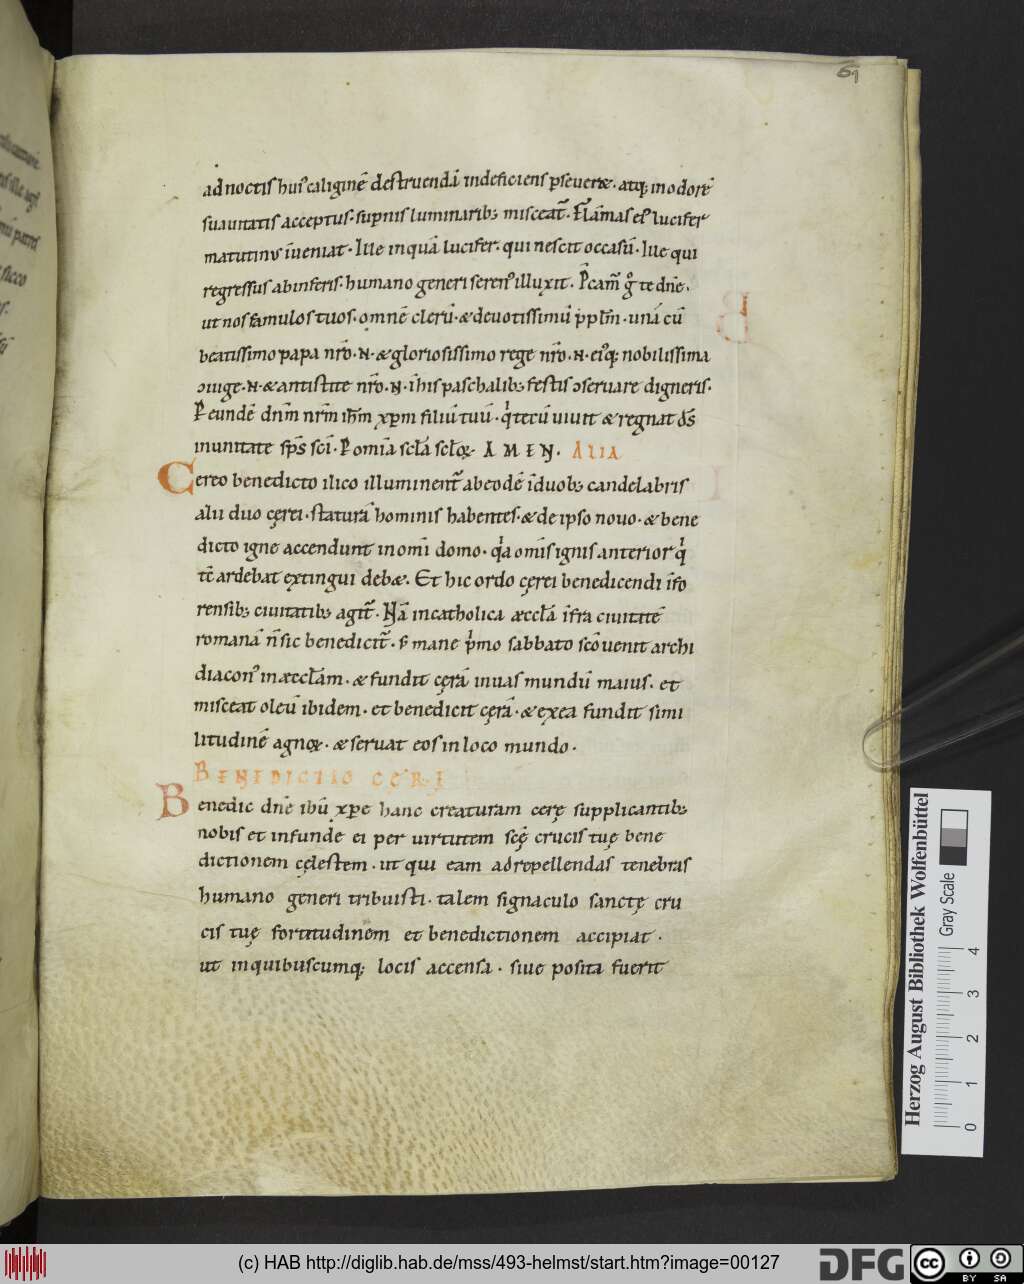 61
ad noctis hui᷒ caliginē destruendā indeficiens ꝑseueret. atq; in odorē
suauitatis acceptus. supnis luminarib; misceat᷑. Flāmas ei᷒ lucifer
matutinus īueniat. Ille inquā lucifer. qui nescit occasū. Ille qui
regressus ab inferis. humano generi seren᷒ illuxit. P̄camur gͦ te dn̄e.
ut nos famulos tuos. omnē clerū. & deuotissimū pplm̄. unā cū
beatissimo papa nr̄o. N. & gloriosissimo rege nr̄o. N. ei᷒q; nobilissima
ↄiuge. N. & antistite nr̄o. N. īhis paschalib; festis ↄseruare digneris.
P eundē dnm̄ nrm̄ ihm̄ xp̄m filiū tuū. q̍ tecū uiuit & regnat ds̄
inunitate sps̄ scī. P om̄ia scl̄a scl̄oꝝ. AMEN. ALIA
Cereo benedicto ilico illuminent᷑ ab eodē īduob; candelabris
alii duo cęrei. staturā hominis habentes. & de ipso nouo. & bene
dicto igne accendunt in om̄i domo. qa om̄is ignis anterior q̍
tc̄ ardebat extingui debet. Et hic ordo cęrei benedicendi īfo
rensib; ciuitatib; agit᷑. Nā incatholica æccl̄a īfra ciuitatē
romanā n̄ sic benedicit᷑. s; mane p̍mo sabbato sc̄o uenit archi
diacon᷒ in æccl̄am. & fundit cęrā inuas mundū maius. et
misceat oleū ibidem. et benedicit cęrā. & ex ea fundit simi
litudinē agnoꝝ. & seruat eos in loco mundo.
BENEDICTIO CERĘ
Benedic dn̄e ihū xp̄e hanc creaturam cerę supplicantib;
nobis et infunde ei per uirtutem scę̄ crucis tuę bene
dictionem cęlestem. ut qui eam ad repellendas tenebras
humano generi tribuisti. talem signaculo sanctę cru
cis tuę fortitudinem et benedictionem accipiat.
ut inquibuscumq; locis accensa. siue posita fuerit
Herzog August Bibliothek Wolfenbüttel
Gray Scale
0 1 2 3 4
(c) HAB http://diglib.hab.de/mss/493-helmst/start.htm?image=00127
DFG
cc BY SA